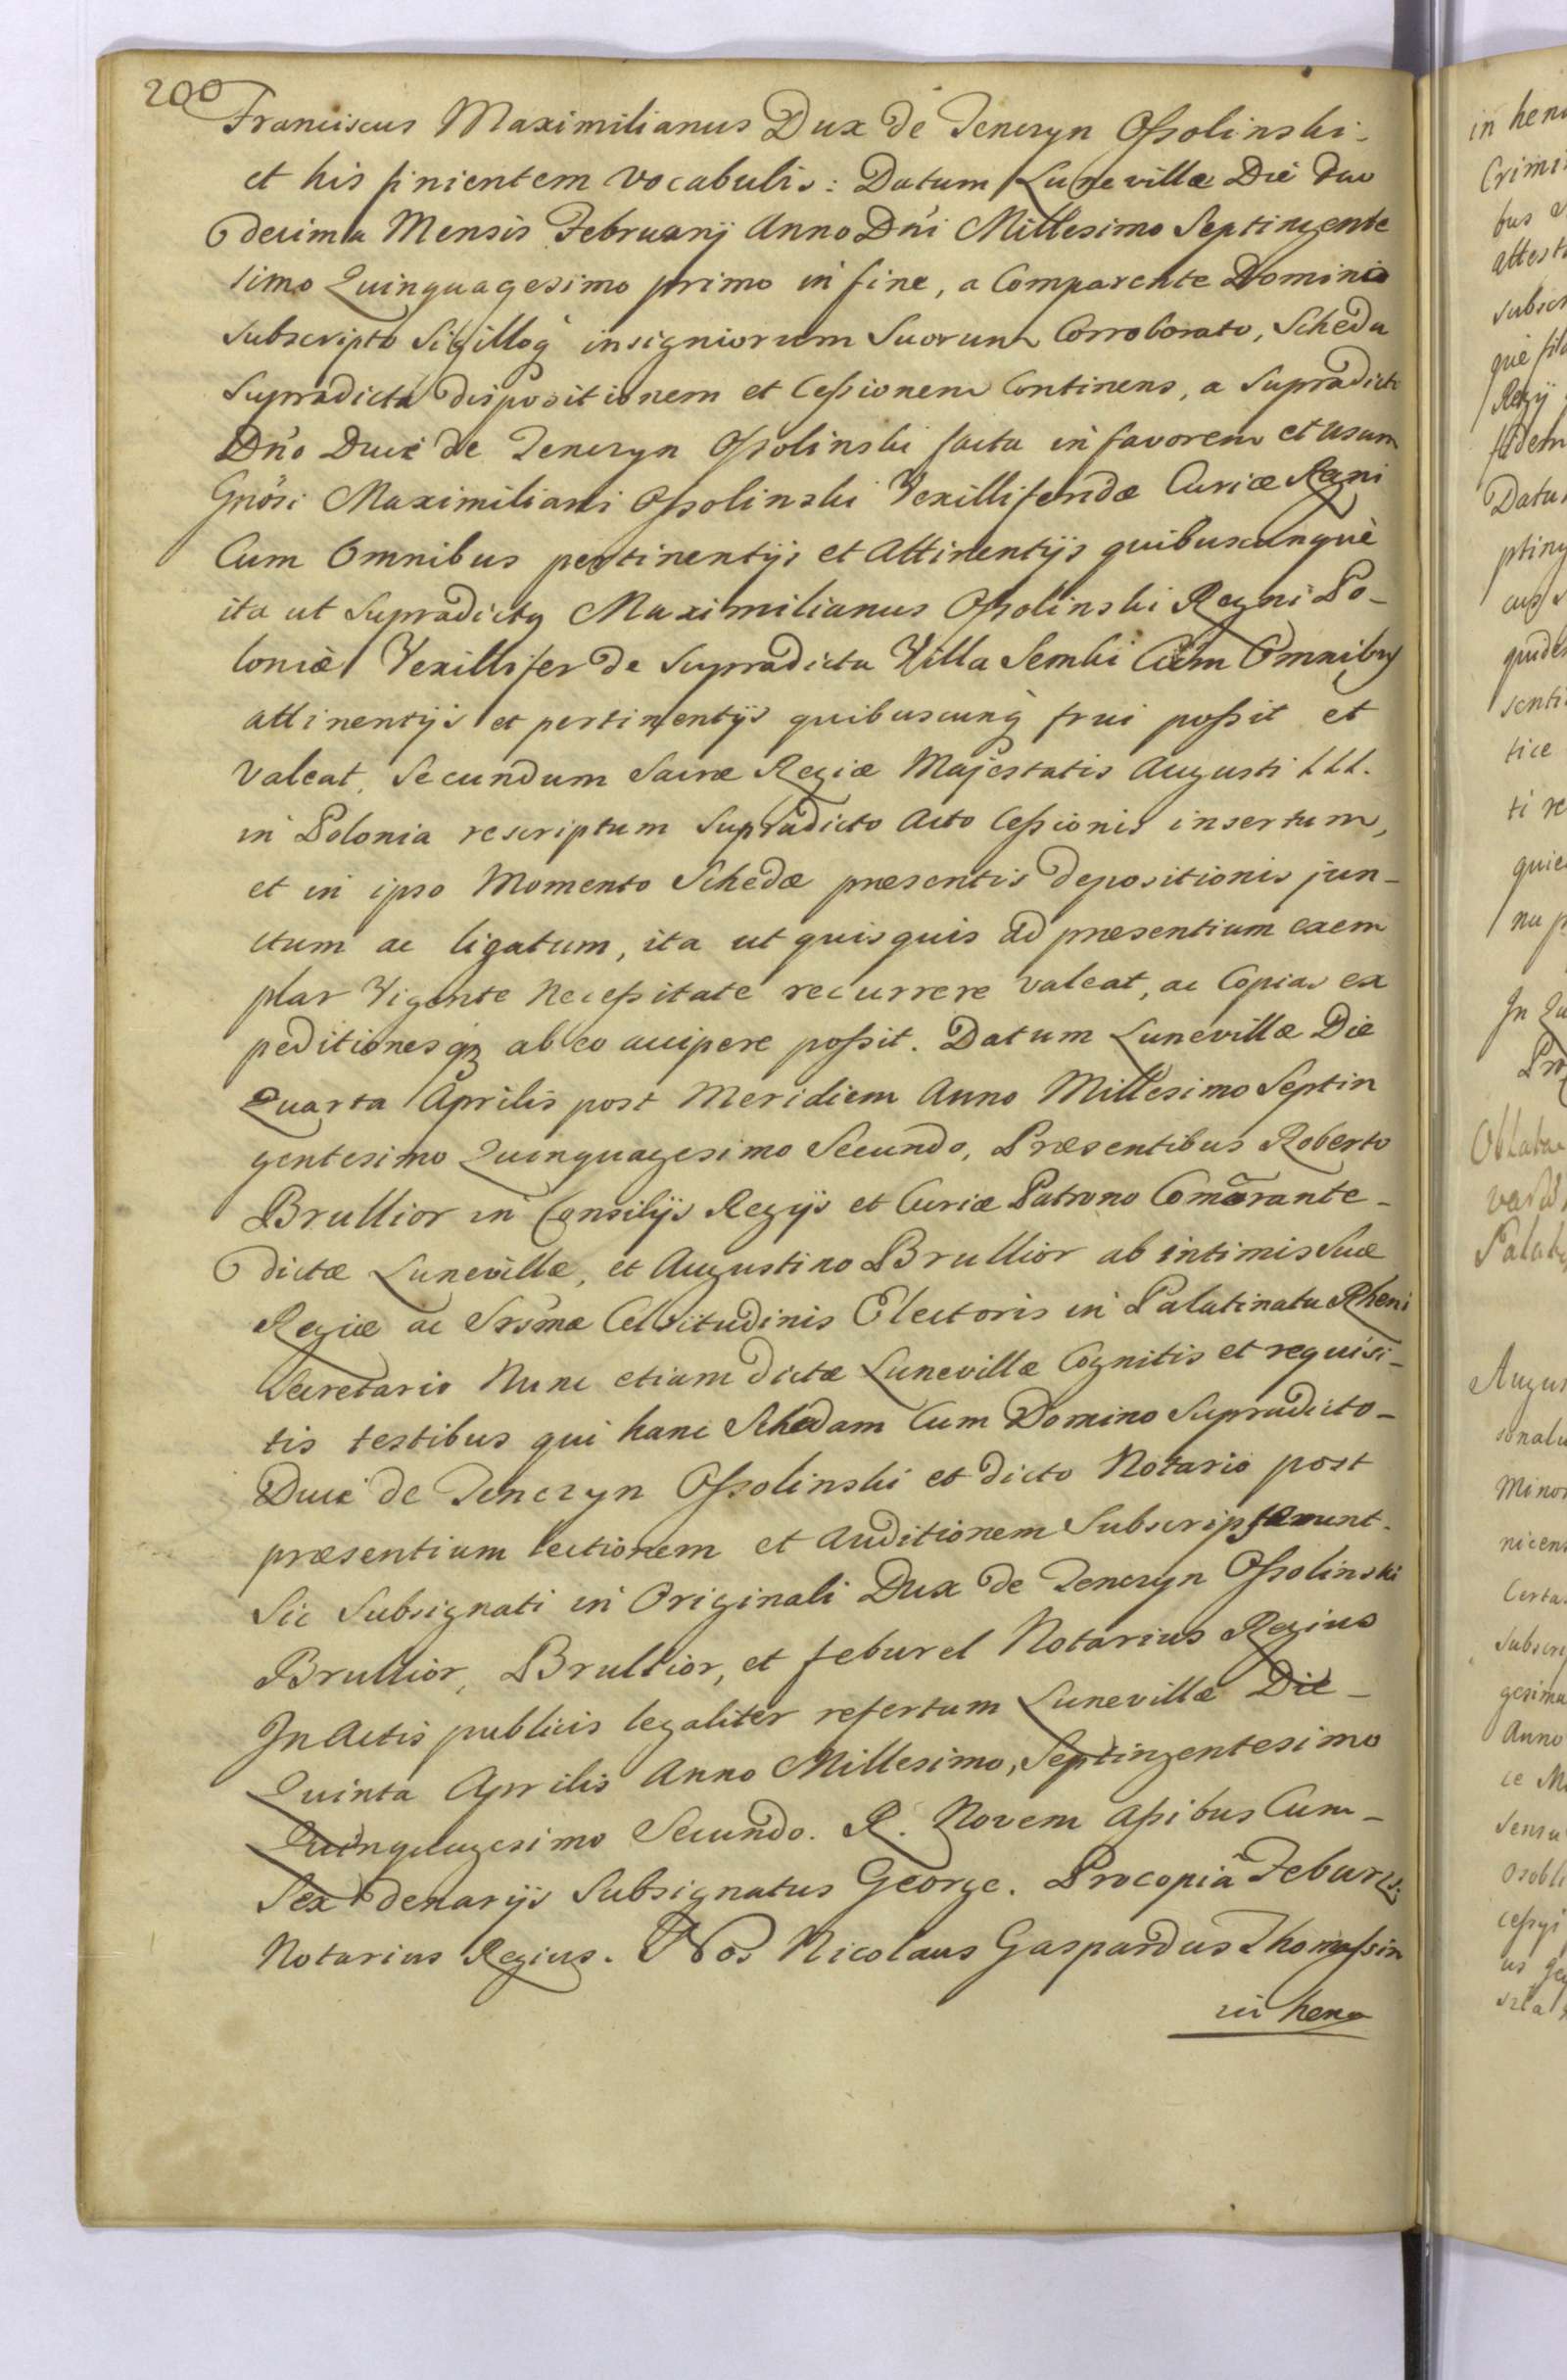 200
Franciscus Maximilianus Dux de Tenczyn Ossolinski
et his finientem vocabulis: Datum Lunevillæ Die duo
decima Mensis Februarij Anno Dni Millesimo Septingente
simo Quinquagesimo primo in fine, a Comparente Domino
subscripto Sigilloq insigniorum Suorum Corroborato, Scheda
Supradicta dispositionem et Cessionem Continens, a Supradicto
Dno Duce de Tenczyn Ossolinski facta in favorem et usum
Gnosi Maximiliani Ossolinski Vexilliferidæ Curiæ Regni
Cum Omnibus pertinentijs et Attinentijs quibuscunque
ita ut Supradictq Maximilianus Ossolinski Regni Po-
loniæ Vexillifer de Supradicta Villa Semki Cum Omnibq
attinentijs et pertinentijs quibuscunq frui possit et
Valeat, Secundum Sacræ Regiæ Majestatis Augusti III.
in Polonia rescriptum Supradicto Acto Cessionis insertum,
et in ipso Momento Schedæ præsentis depositionis jun-
ctum ac ligatum, ita ut quisquis ad præsentium exem
plar Vigente Necessitate recurrere valeat, ac Copias ex
peditionesq ab eo accipere possit. Datum Lunevillæ Die
Quarta Aprilis post Meridiem Anno Millesimo Septin
gentesimo Quinquagesimo Secundo, Præsentibus Roberto
Brullior in Consilijs Regijs et Curiæ Patrono Comorante-
dictæ Lunevillæ, et Augustino Brullior ab intimis Suæ
Regiæ ac Srsmæ Celsitudinis Electoris in Palatinatu Rheni
Secretario Nunc etiam dictæ Lunevillæ Cognitis et requisi-
tis testibus qui hanc Schedam Cum Domino Supradicto-
Duce de Tenczyn Ossolinski et dicto Notario post
præsentium lectionem et Auditionem Subscripserunt.
Sic Subsignati in Originali Dux de Tenczyn Ossolinski
Brullior, Brullior, et feburel Notarius Regius
In Actis publicis legaliter refertum Lunevillæ Die-
Quinta Aprilis Anno Millesimo, Septingentesimo
Quinquagesimo Secundo. R. Novem Assibus Cum-
Sex denarijs Subsignatus George. Procopia Feburel
Notarius Regius. Nos Nicolaus Gaspardus Thomassin
in heno